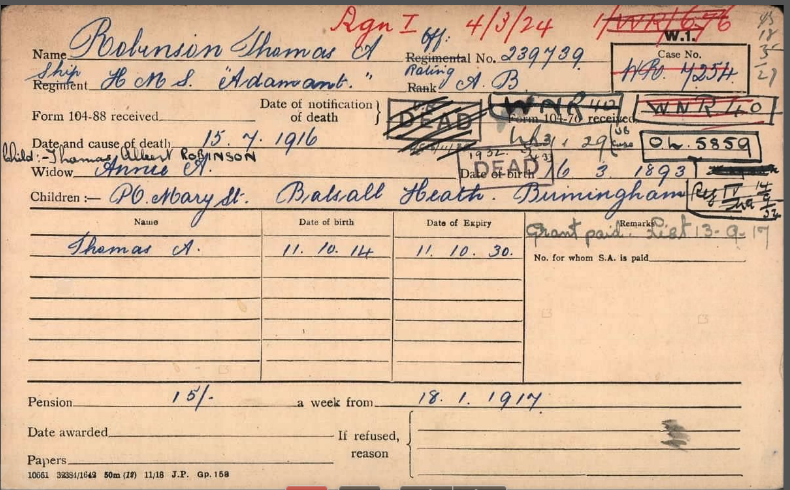 Agn I 4/3/24 1/WR/676
W.1.
Name Robinson Thomas A Off: Regimental No. 239739 Case No.
Ship Rating WR. 7254
Regiment H M S. "Adamant." Rank A. B.
Form 104-88 received Date of notification of death DEAD WNR 40 Form 104-76 received WNR 40
Date and cause of death 15. 7. 1916 OL. 5859
Child:- Thomas Albert ROBINSON
Widow Annie A. DEAD Date of birth 16 3 1893
Children :— PO. Mary St. Balsall Heath. Birmingham
Name Date of birth Date of Expiry Remarks
Grant paid. List 13-9-17
Thomas A. 11. 10. 14 11. 10. 30.
No. for whom S.A. is paid
Pension 15/- a week from 18. 1. 1917.
Date awarded
If refused, reason
Papers
10661 32384/1642 50m (12) 11/16 J.P. Gp.158